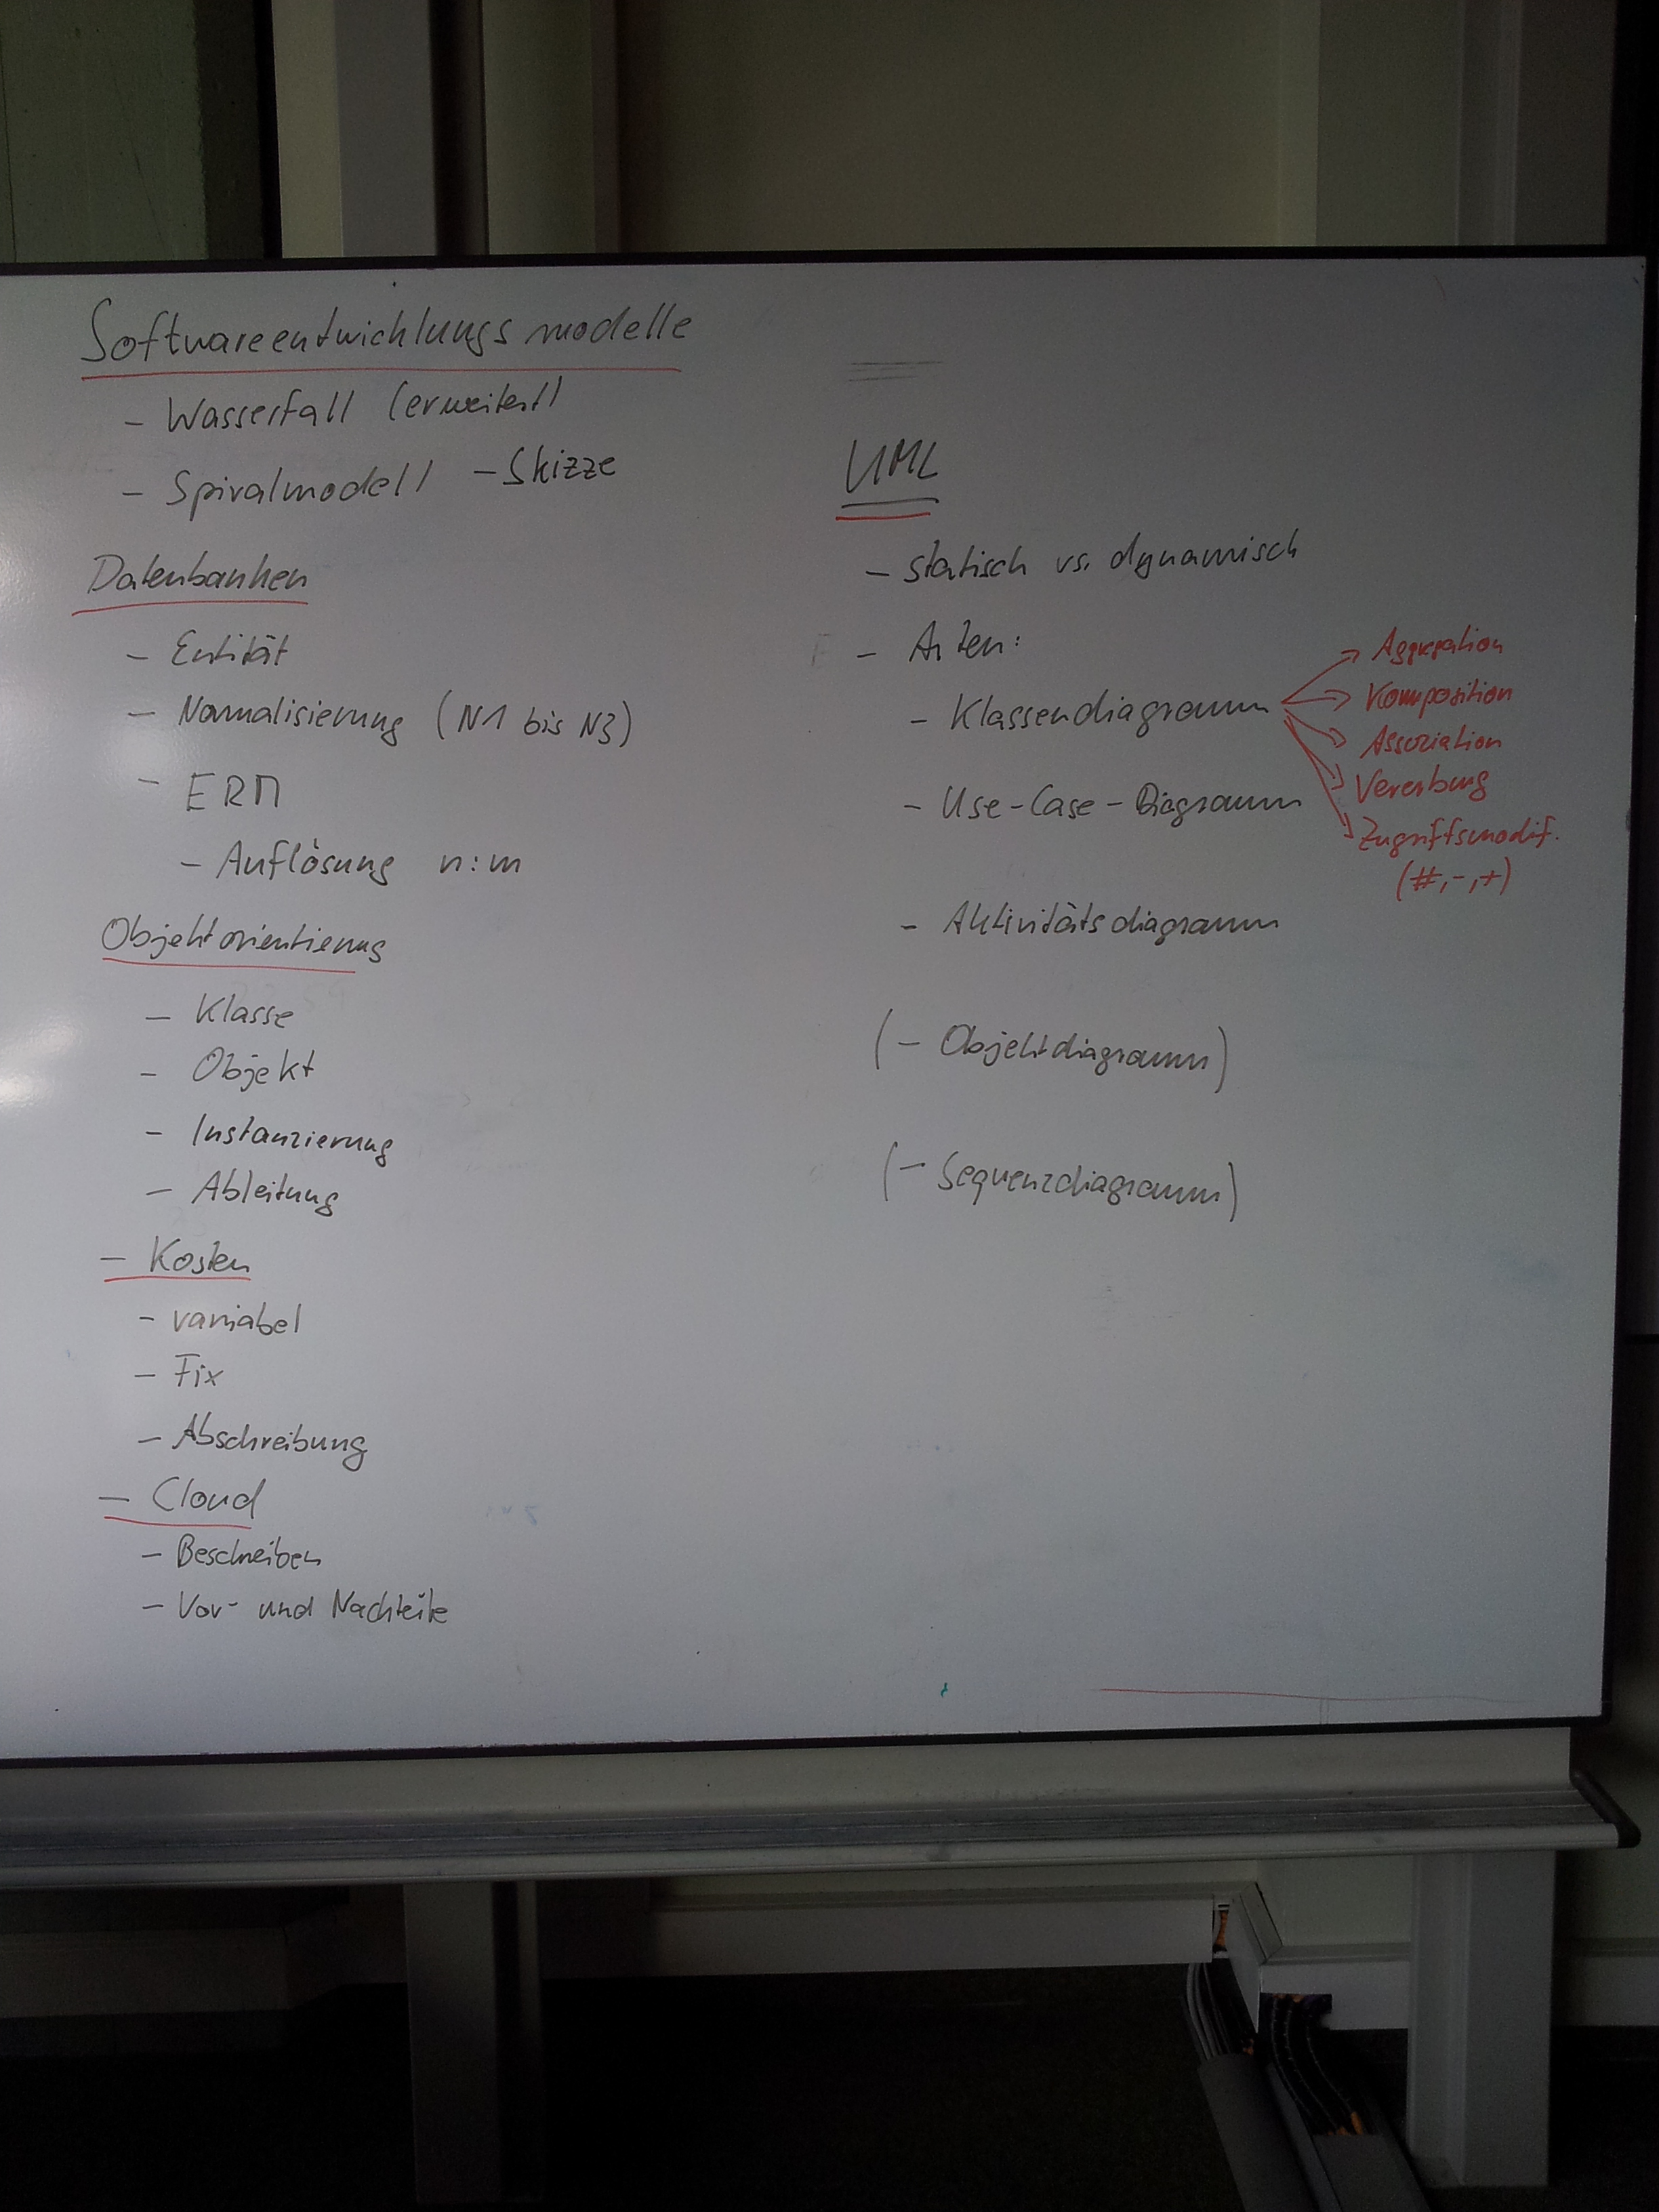 Softwareentwicklungsmodelle
- Wasserfall (erweitert)
- Spiralmodell - Skizze
Datenbanken
- Entität
- Normalisierung (N1 bis N3)
- ERM
- Auflösung n:m
Objektorientierung
- Klasse
- Objekt
- Instanzierung
- Ableitung
- Kosten
- variabel
- Fix
- Abschreibung
- Cloud
- Beschreiben
- Vor- und Nachteile
UML
- statisch vs. dynamisch
- Arten:
- Klassendiagramm
Aggregation
Komposition
Assoziation
Vererbung
Zugriffsmodif.
(#,-,+)
- Use-Case-Diagramm
- Aktivitätsdiagramm
(- Objektdiagramm)
(- Sequenzdiagramm)